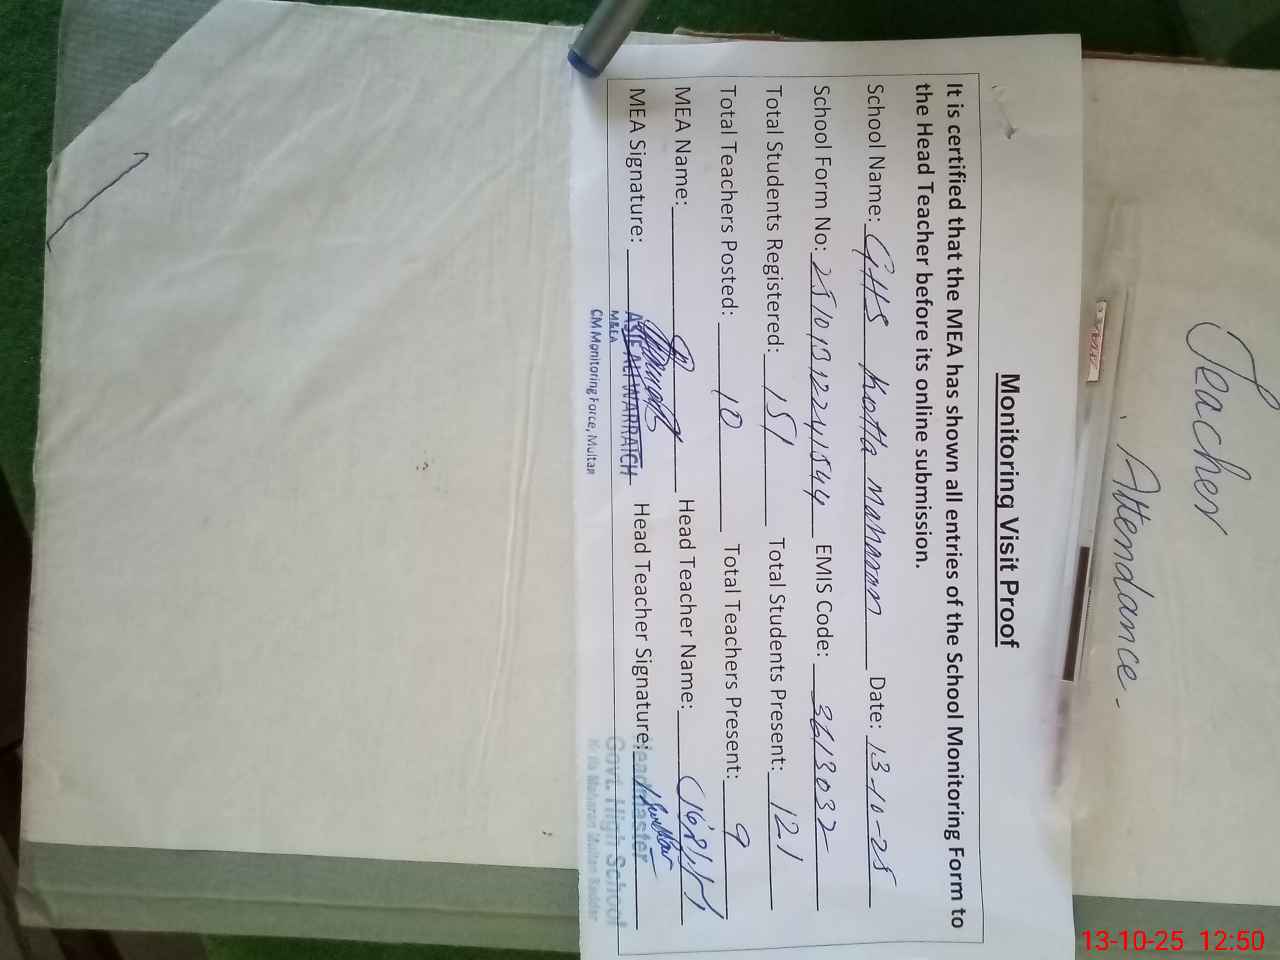 Teacher
Attendance.
Monitoring Visit Proof
It is certified that the MEA has shown all entries of the School Monitoring Form to
the Head Teacher before its online submission.
School Name: GHS Kotla Maharan Date: 13-10-25
School Form No: EMIS Code:
Total Students Registered: 151 Total Students Present: 121
Total Teachers Posted: 10 Total Teachers Present: 9
MEA Name: Head Teacher Name:
MEA Signature: Head Teacher Signature:
ASIF ALI WARRAICH
M&EA
CM Monitoring Force, Multan
Headmaster
Govt. High School
Kotla Maharan Multan Saddar
13-10-25 12:50